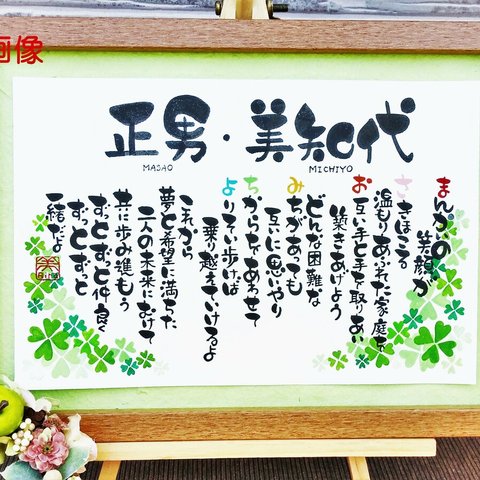 画像
正男・美知代
MASAO
MICHIYO
まんかいの
笑顔が
さきほこる
温もりあふれた家庭を
お互い手と手を取りあい
築きあげよう
どんな困難な
みちがあっても
互いに思いやり
ちからをあわせて
よりそい歩けば
乗り越えていけるよ
これから
夢と希望に満ちた
二人の未来にむけて
共に歩み進もう
ずっとずっと仲良く
ずっとずっと
一緒だよ
笑